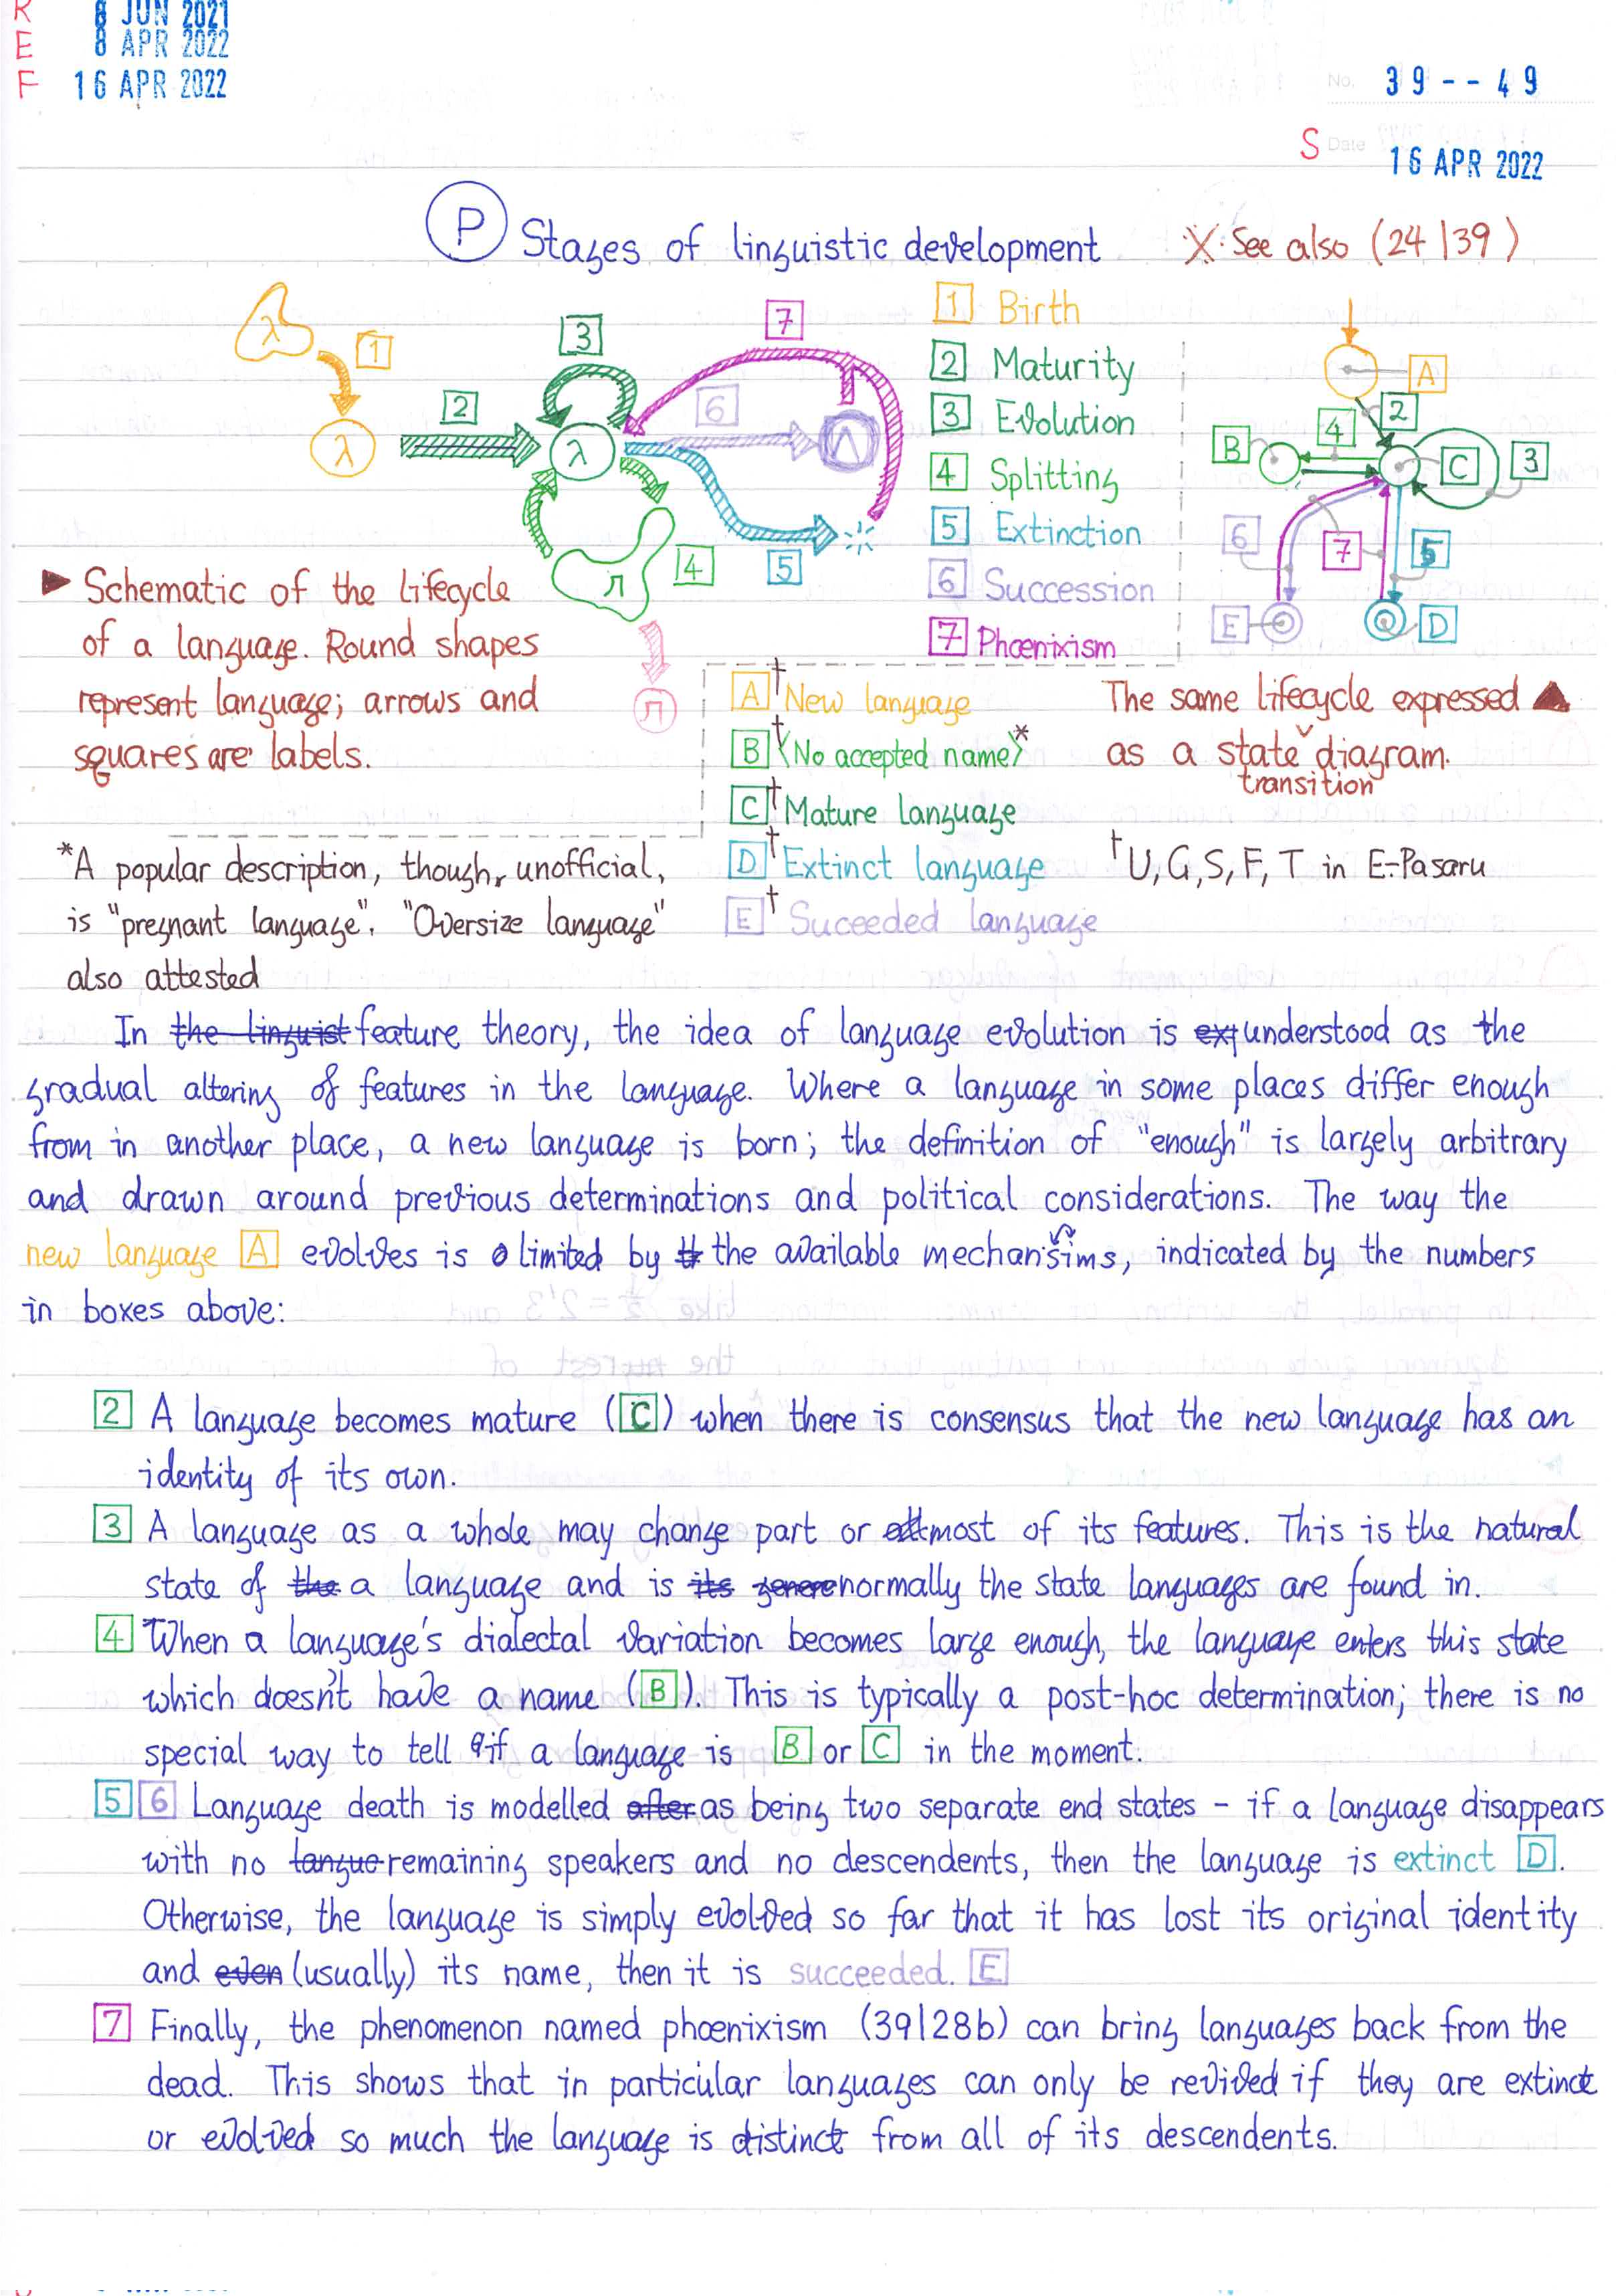 R 8 JUN 2021
E 8 APR 2022
F 16 APR 2022
No. 39--49
S Date 16 APR 2022
P Stages of linguistic development
※ See also (24|39)
λ
1
λ
2
3
λ
4
л
л
5
6
Λ
7
1 Birth
2 Maturity
3 Evolution
4 Splitting
5 Extinction
6 Succession
7 Phœnixism
A
2
B
4
C
3
6
7
5
E
D
▶ Schematic of the lifecycle
of a language. Round shapes
represent language; arrows and
squares are labels.
A† New language
B† ⟨No accepted name⟩*
C† Mature language
D† Extinct language
E† Suceeded language
The same lifecycle expressed ▲
as a state transition diagram.
†U, G, S, F, T in E-Pasaru
*A popular description, though unofficial,
is "pregnant language". "Oversize language"
also attested
In the linguist feature theory, the idea of language evolution is ext understood as the
gradual altering of features in the language. Where a language in some places differ enough
from in another place, a new language is born; the definition of "enough" is largely arbitrary
and drawn around previous determinations and political considerations. The way the
new language A evolves is limited by the available mechansims, indicated by the numbers
in boxes above:
2 A language becomes mature (C) when there is consensus that the new language has an
identity of its own.
3 A language as a whole may change part or most of its features. This is the natural
state of the a language and is its genere normally the state languages are found in.
4 When a language's dialectal variation becomes large enough, the language enters this state
which doesn't have a name (B). This is typically a post-hoc determination; there is no
special way to tell if a language is B or C in the moment.
5 6 Language death is modelled after as being two separate end states – if a language disappears
with no langue remaining speakers and no descendents, then the language is extinct D.
Otherwise, the language is simply evolved so far that it has lost its original identity
and even (usually) its name, then it is succeeded. E
7 Finally, the phenomenon named phœnixism (39|28b) can bring languages back from the
dead. This shows that in particular languages can only be revived if they are extinct
or evolved so much the language is distinct from all of its descendents.